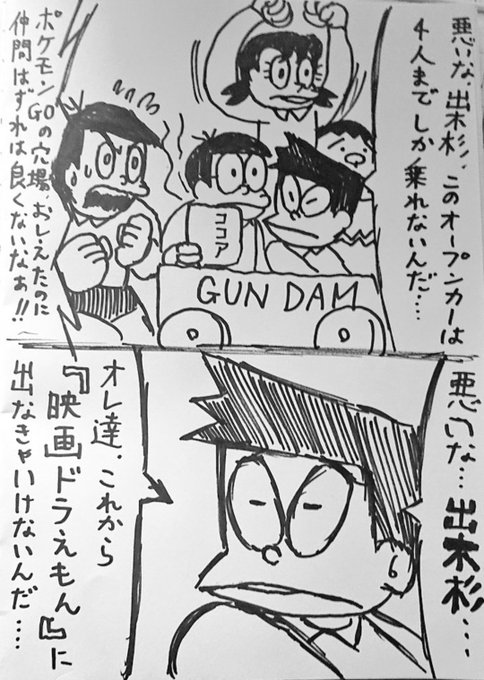 悪いな、出木杉、このオープンカーは
4人までしか乗れないんだ…
ポケモンGOの穴場、おしえたのに
仲間はずれは良くないなぁ!!
ココア
GUNDAM
悪いな…出木杉…
オレ達、これから
『映画ドラえもん』に
出なきゃいけないんだ…